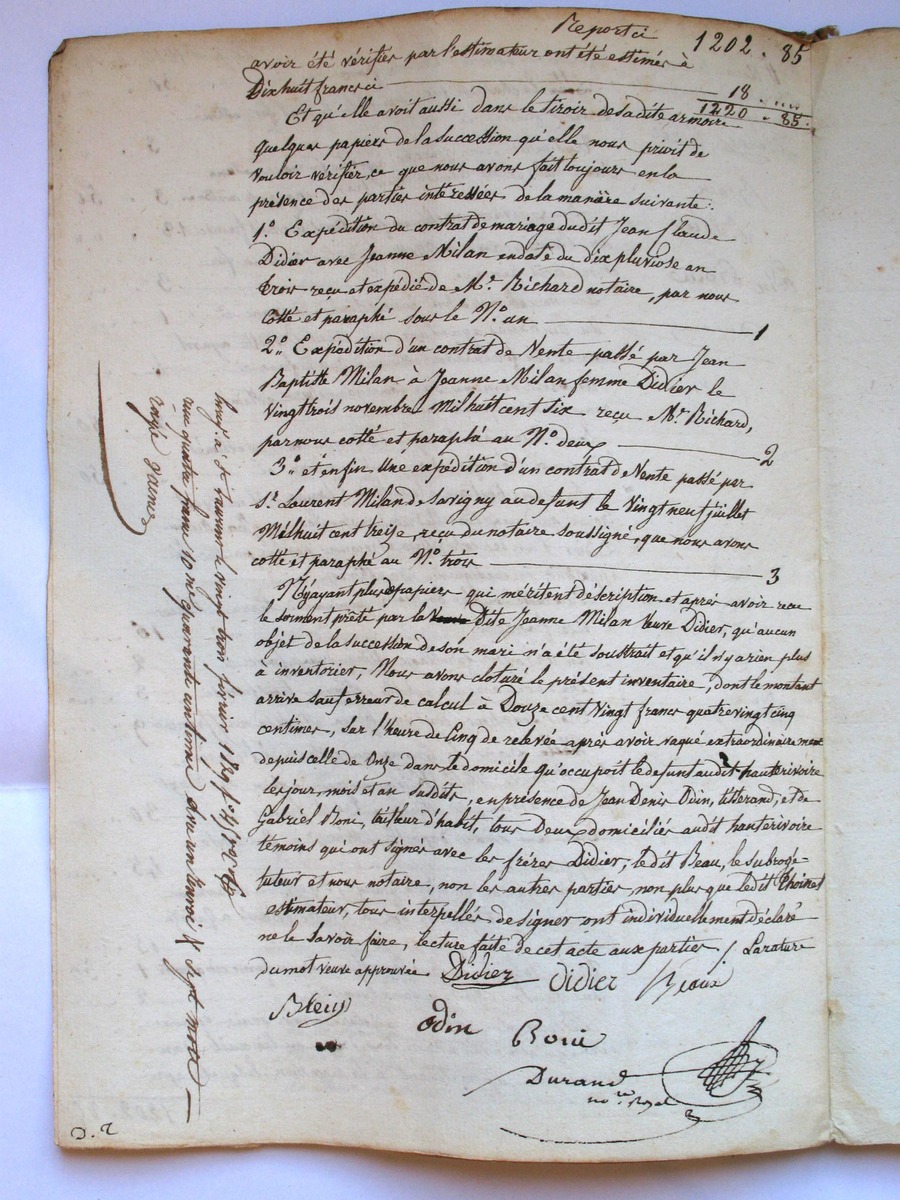 Report ci 1202 . 85
avoir été vérifiés par l'estimateur ont été estimés à
Dix huit francs ci 18 . "
1220 . 85.
Et qu'elle avoit aussi dans le tiroir de sa dite armoire
quelques papiers de la succession qu'elle nous prioit de
vouloir vérifier, ce que nous avons fait toujours en la
présence des parties intéressées de la manière suivante:
1.° Expédition du contrat de mariage dudit Jean Claude
Didier avec Jeanne Milan en date du dix pluviose an
trois reçu et expédié de Me. Richard notaire, par nous
Cotté et paraphé sous le No. un 1
2.° Expédition d'un contrat de Vente passé par Jean
Baptiste Milan à Jeanne Milan femme Didier le
vingt trois novembre Mil huit cent six reçu Me. Richard,
par nous cotté et paraphé au No. deux 2
3.° et enfin Une expédition d'un contrat de Vente passé par
Sr. Laurent Milan de Savigny au defunt le Vingt neuf juillet
Mil huit cent treize, reçu du notaire soussigné, que nous avons
cotté et paraphé au No. trois 3
N'y ayant plus de papiers qui méritent déscription et après avoir reçu
le serment prêté par la Dite Jeanne Milan Veuve Didier, qu'aucun
objet de la succession de son mari n'a été soustrait et qu'il n'y a rien plus
à inventorier, Nous avons cloturé le présent inventaire, dont le montant
arrive sauf erreur de calcul à Douze cent Vingt francs quatre vingt cinq
centimes, sur l'heure de Cinq de relevée après avoir vaqué extraordinairement
depuis celle de Onze dans le domicile qu'occupoit le defunt audit hauterivoire
les jour, mois et an susdits, en présence de Jean Denis Odin, tisserand, et de
Gabriel Boni, tailleur d'habit, tous Deux domiciliés audit hauterivoire
témoins qui ont signés avec les frères Didier, le dit Beau, le subrogé-
tuteur et nous notaire, non les autres parties, non plus que ledit
estimateur, tous interpellés de signer ont individuellement déclaré
ne le savoir faire, lecture faite de cet acte aux parties / La rature
du mot veuve approuvée Didier Didier Beaux
odin Boni
Durand
nore. royal
vingt trois février
quatre francs quarante centimes